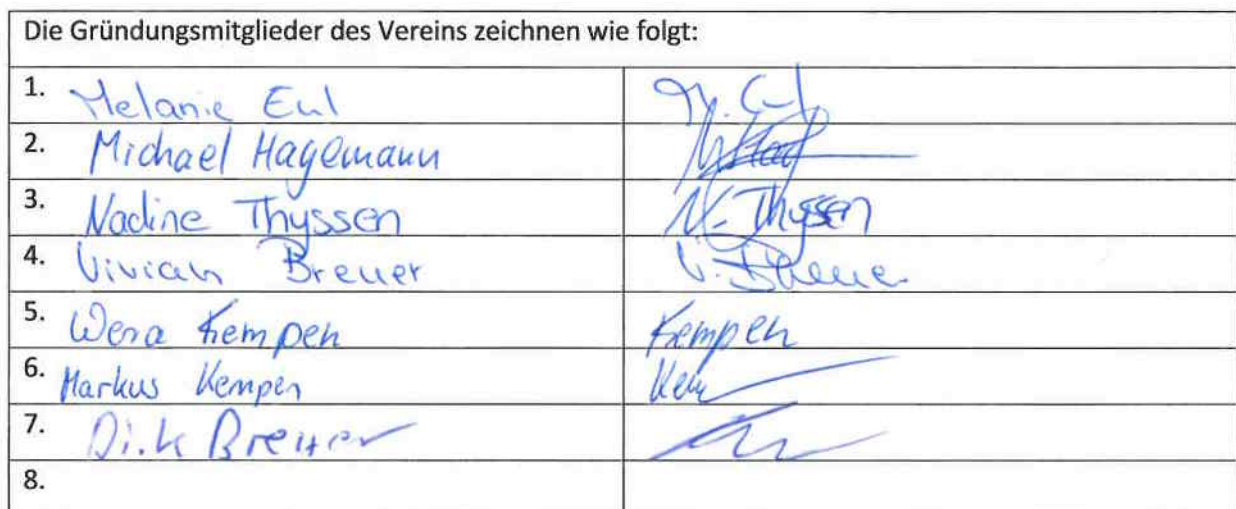 Die Gründungsmitglieder des Vereins zeichnen wie folgt:
1. Melanie Eul M. Eul
2. Michael Hagemann
3. Nadine Thyssen N. Thyssen
4. Vivian Breuer V. Breuer
5. Wera Kempen Kempen
6. Markus Kempen
7. Dirk Breuer
8.